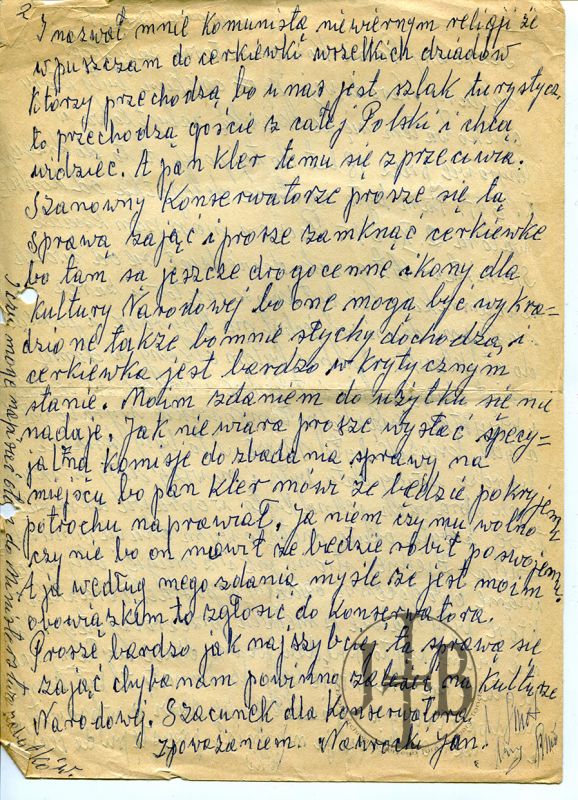 2
I nazwał mnie komunistą niewiernym religji że
wpuszczam do cerkiewki wrzelkich dziadów
którzy przechodzą bo u nas jest szlak turystycz.
to przechodzą goście z całej Polski i chcą
widzieć. A pan kler temu się zprzeciwia.
Szanowny Konserwatorze prosze się tą
sprawą zająć i prosze zamknąć cerkiewke
bo tam są jeszcze drogocenne ikony dla
kultury Narodowej bo one mogą być wykra-
dzione także bo mnie słychy dochodzą, i
cerkiewka jest bardzo w krytycznym
stanie. Moim zdaniem do użytku się nie
nadaje. Jak niewiara prosze wysłać specy-
jalną komisje do zbadania sprawy na
miejscu bo pan kler mówi że będzie pokryjemu
potrochu naprawiał. Ja niem czy mu wolno
czy nie bo on mówił że będzie robił po swojemu.
A ja według mego zdania myśle że jest moim
obowiązkiem to zgłosić do konserwatora.
Proszę bardzo jak najszybciej tą sprawą się
zająć chyba nam powinno zależeć na kulturze
Narodowej. Szacunek dla Konserwatora
zpoważaniem. Nawrocki Jan.
może napisać do
JHB